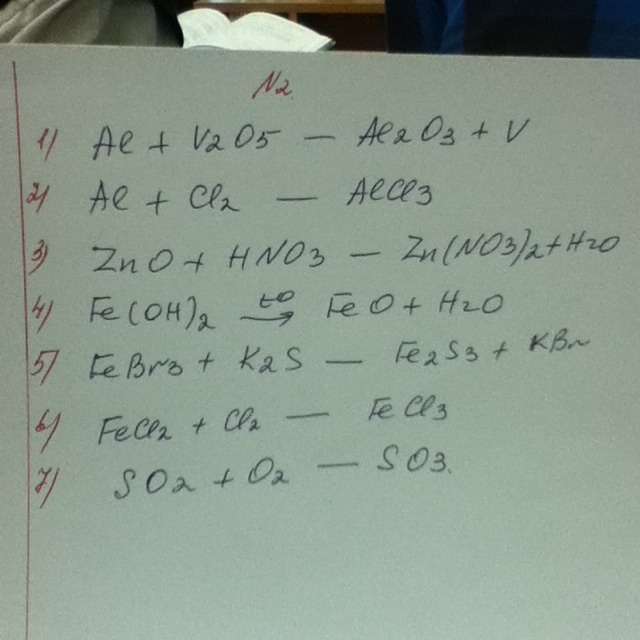 N2.
1) Al + V2O5 — Al2O3 + V
2) Al + Cl2 — AlCl3
3) ZnO + HNO3 — Zn(NO3)2 + H2O
4) Fe(OH)2 t0→ FeO + H2O
5) FeBr3 + K2S — Fe2S3 + KBr
6) FeCl2 + Cl2 — FeCl3
7) SO2 + O2 — SO3.